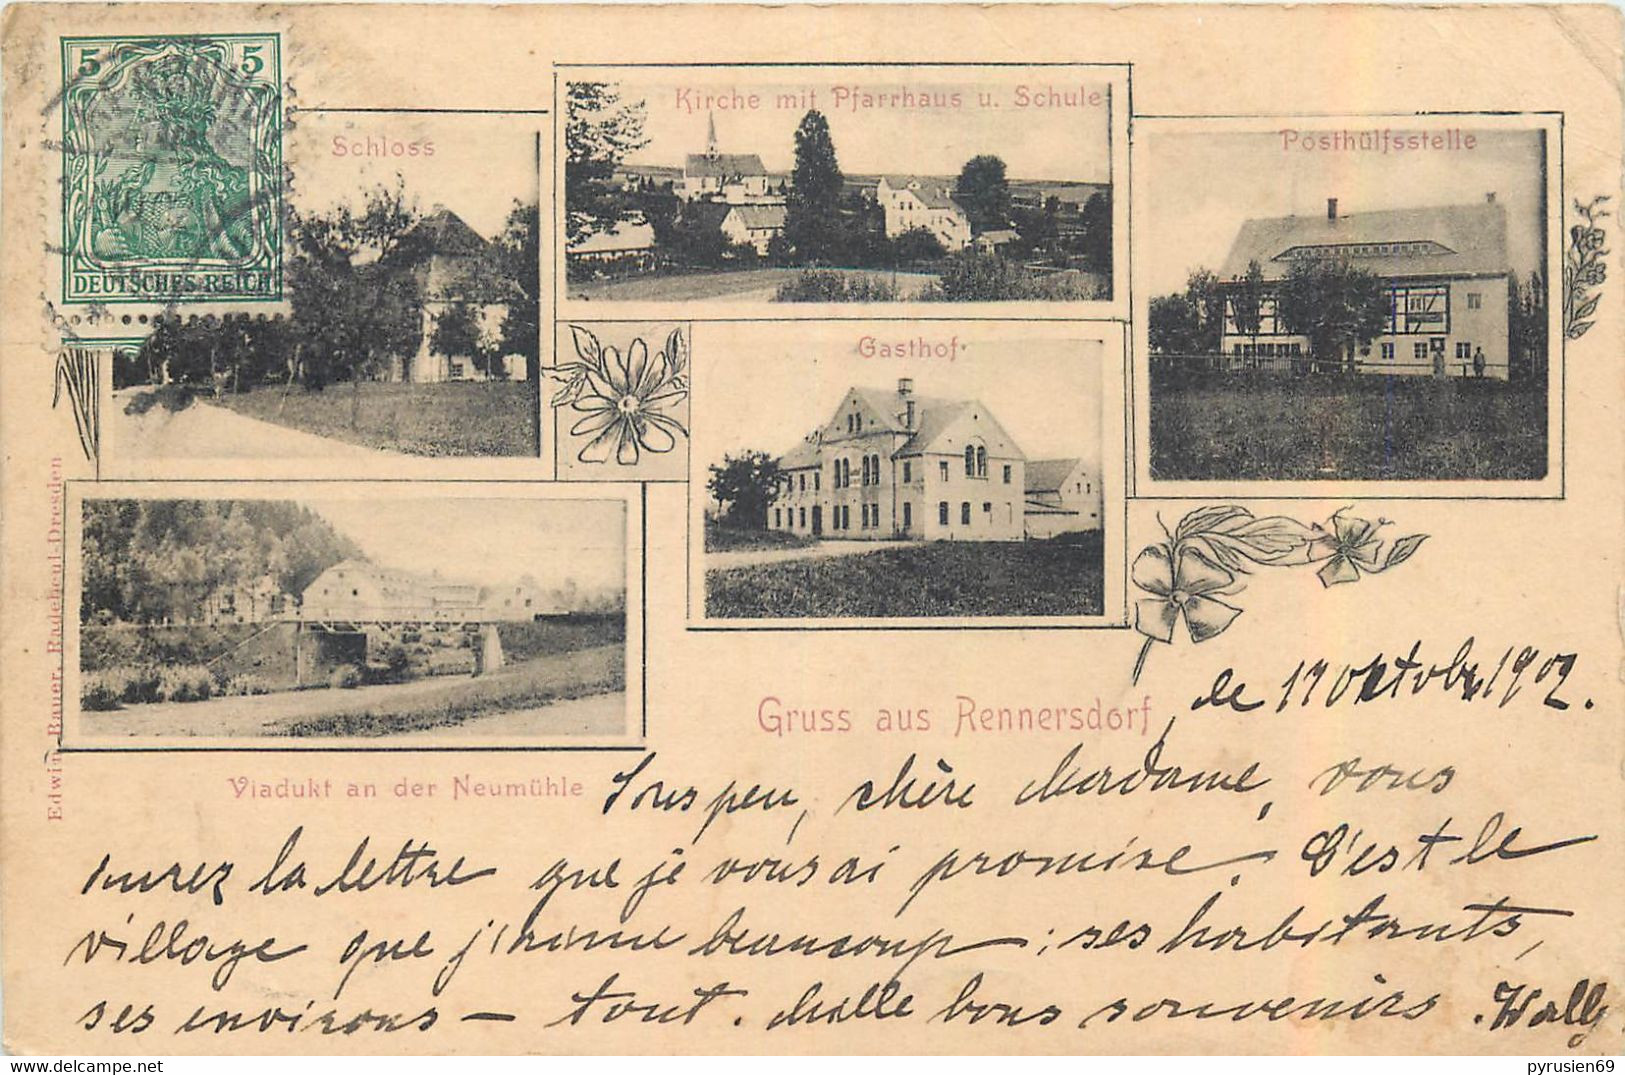 5 5
DEUTSCHES REICH
Schloss
Kirche mit Pfarrhaus u. Schule
Posthülfsstelle
Gasthof
Viadukt an der Neumühle
Edwin Bauer, Radebeul-Dresden
Gruss aus Rennersdorf,
le 17 Oktobr 1902.
Sous peu, chère Madame, vous
aurez la lettre que je vous ai promise. C'est le
village que j'aime beaucoup; ses habitants,
ses environs – tout. Mille bons souvenirs. Wally
www.delcampe.net
pyrusien69